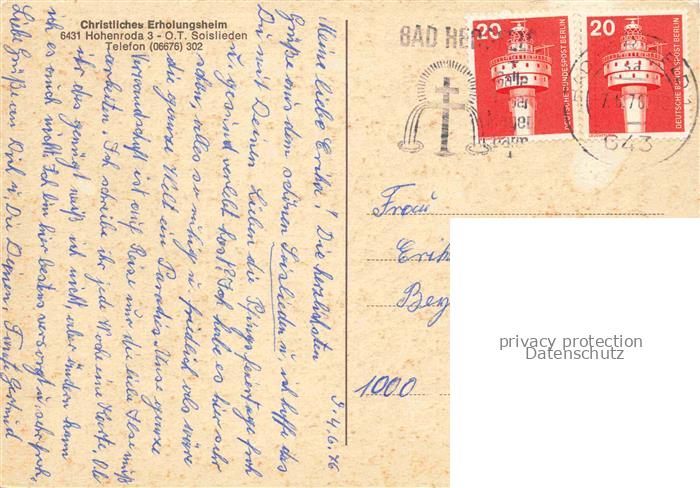 Christliches Erholungsheim
6431 Hohenroda 3 - O.T. Soislieden
Telefon (06676) 302
D. 4.6.76
Meine liebe Erika! Die herzlichsten
Grüße aus dem schönen Soislieden u. ich hoffe das
Du mit Deinen Lieben die Pfingstfeiertage froh
u. gesund verlebt hast? Ich habe es hier sehr
schön, alles so ruhig u. friedlich als wäre
die ganze Welt ein Paradies. Meine ganze
Verwandschaft ist auf Reise nur die liebe Ilse muß
arbeiten. Ich schreibe ihr jede Woche eine Karte. Ob
ihr das genügt weiß ich nicht, aber ändern kann
ich es auch nicht. Ich bin hier bestens versorgt u. sehr froh.
Liebe Grüße an Dich u. Die Deinen,
BAD
20
DEUTSCHE BUNDESPOST BERLIN
20
DEUTSCHE BUNDESPOST BERLIN
7.6.76
643
Frau
Erik
1000
privacy protection
Datenschutz